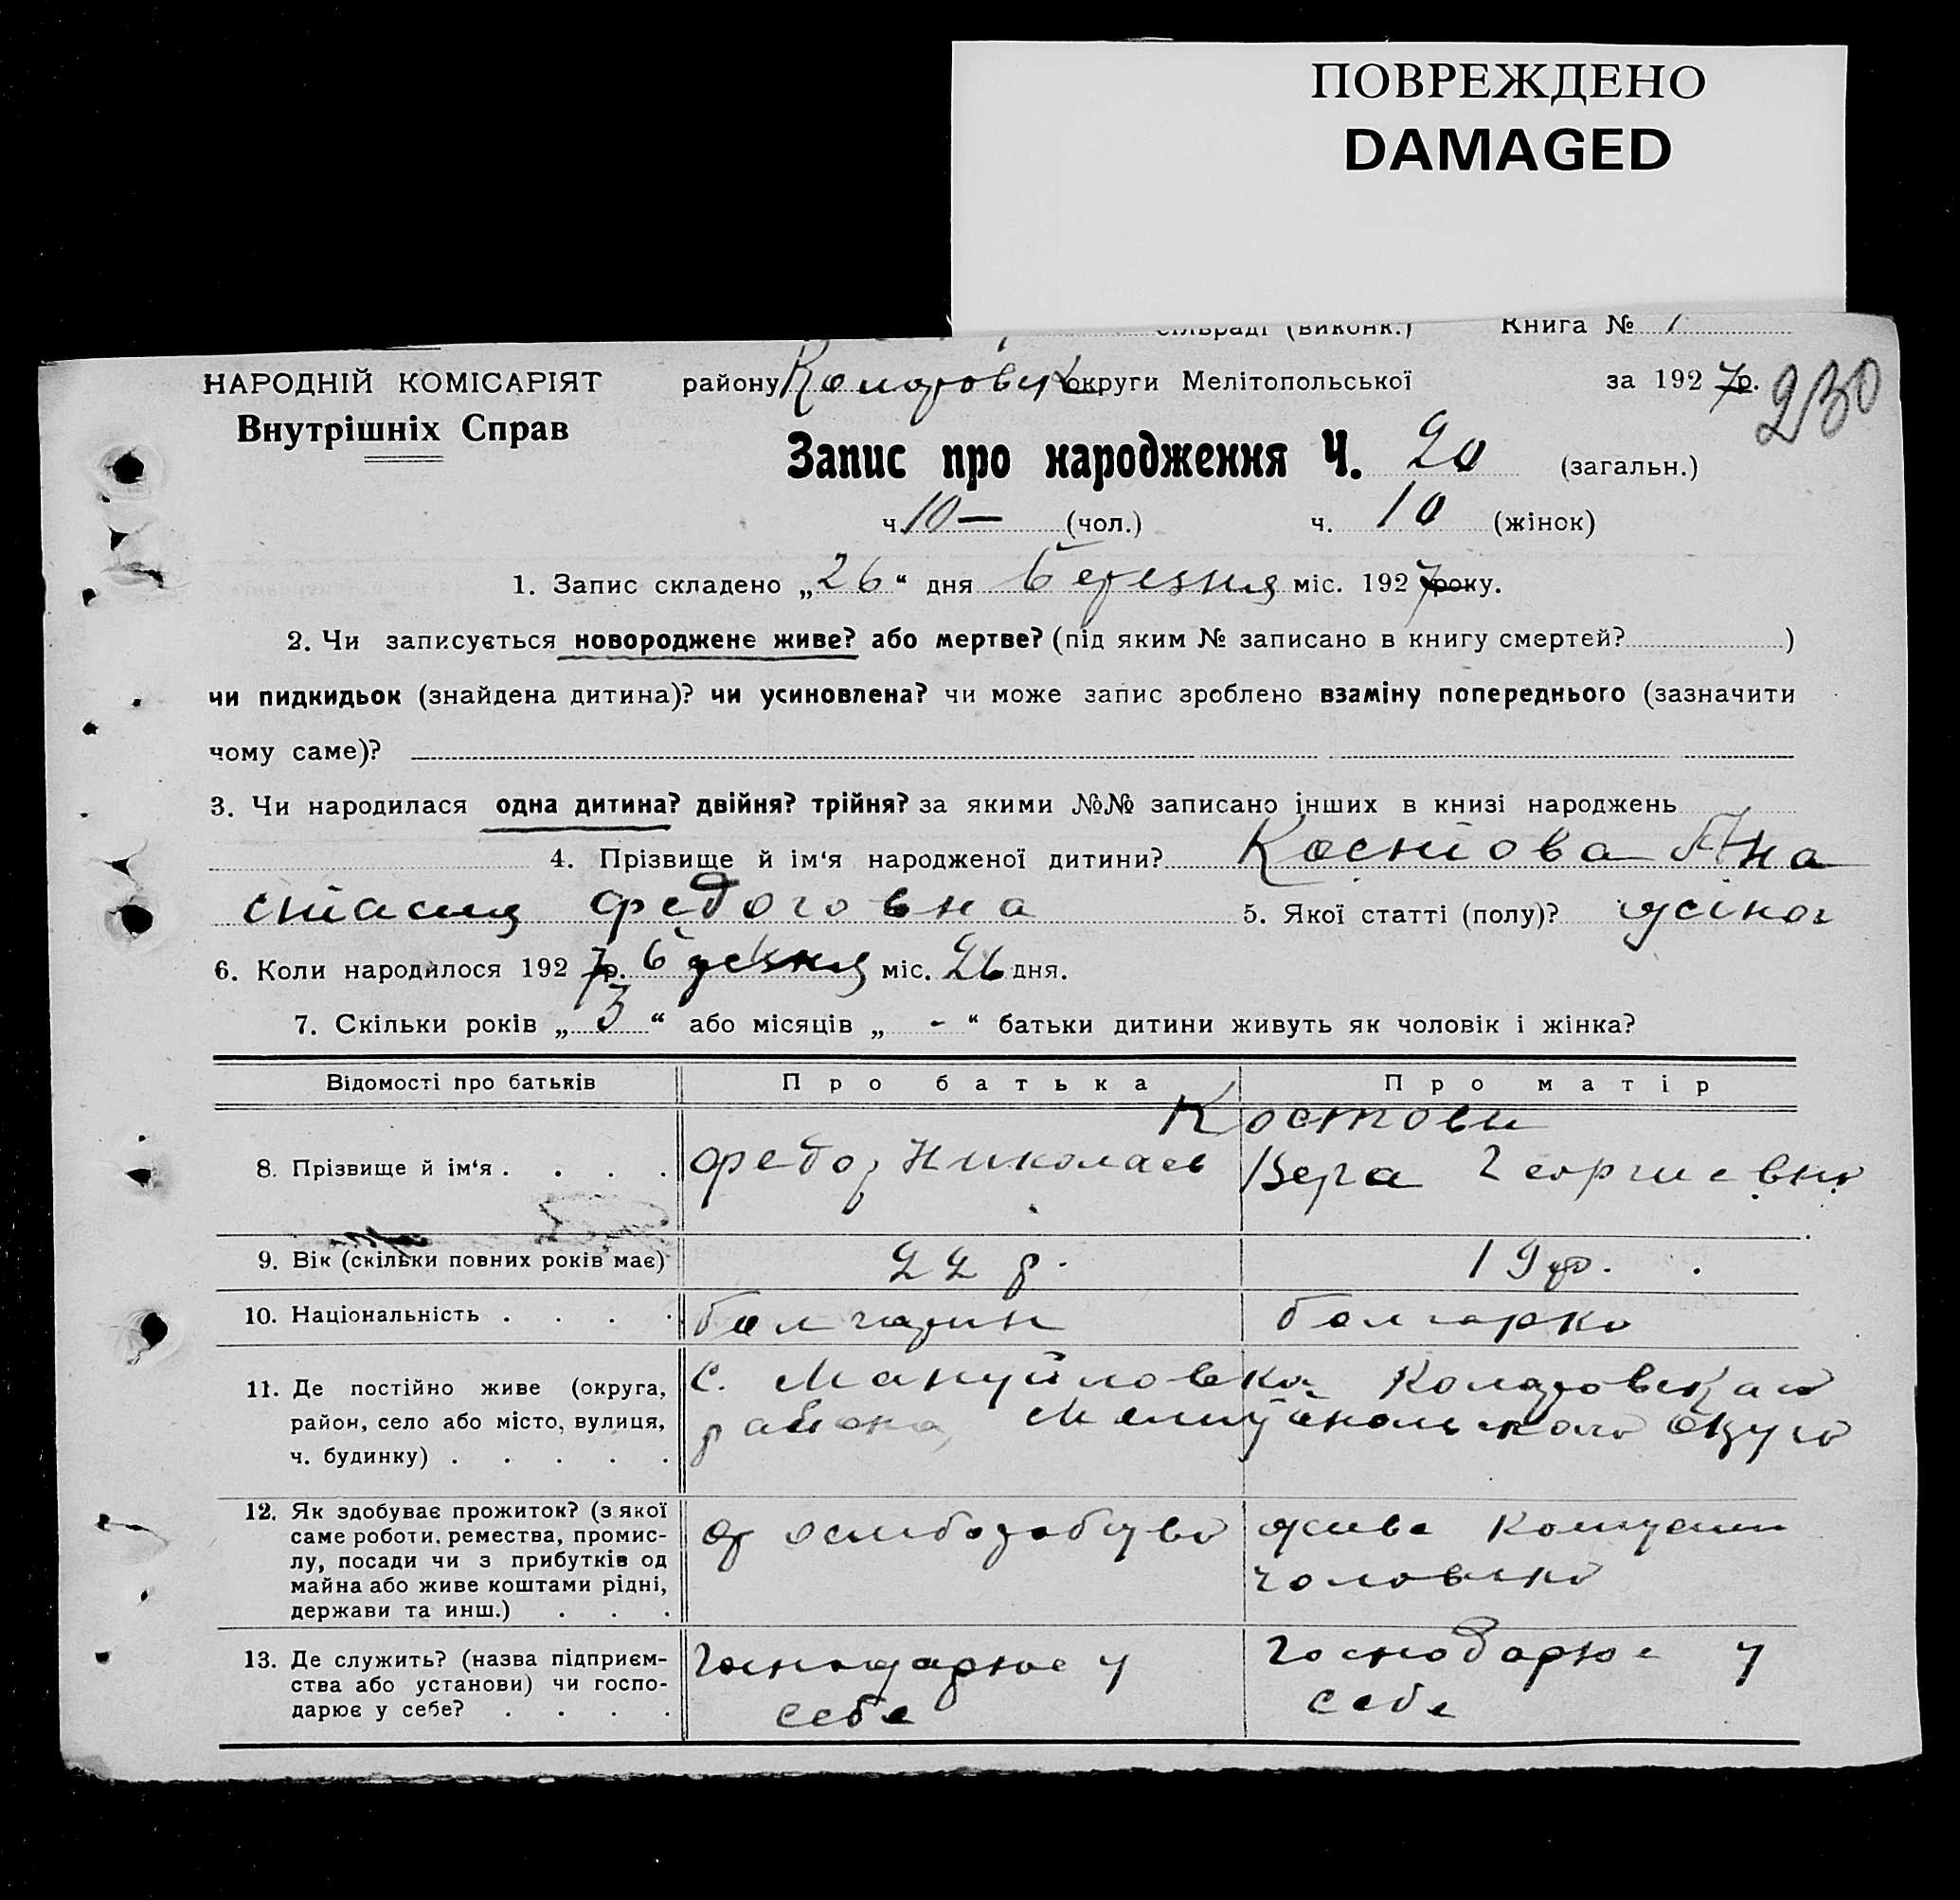 ПОВРЕЖДЕНО
DAMAGED
сільраді (виконк.) Книга № 1
НАРОДНІЙ КОМІСАРІЯТ району Коларовськ округи Мелітопольської за 1927 р. 230
Внутрішніх Справ
Запис про народження Ч. 20 (загальн.)
ч. 10 — (чол.) ч. 10 (жінок)
1. Запис складено „26“ дня березня міс. 1927 року.
2. Чи записується новороджене живе? або мертве? (під яким № записано в книгу смертей? )
чи пидкидьок (знайдена дитина)? чи усиновлена? чи може запис зроблено взаміну попереднього (зазначити
чому саме)?
3. Чи народилася одна дитина? двійня? трійня? за якими №№ записано інших в книзі народжень
4. Прізвище й ім‘я народженої дитини? Костова Ана
стасия Федоровна 5. Якої статті (полу)? жіноч
6. Коли народилося 1927 р. березня міс. 26 дня.
7. Скільки років „3“ або місяців „ - “ батьки дитини живуть як чоловік і жінка?
Відомості про батьків Про батька Про матір
Костови
8. Прізвище й ім‘я . . . . Федор Николаев Вера Георгиевна
9. Вік (скільки повних років має) 22 р. 19 р.
10. Національність . . . . болгарин болгарка
11. Де постійно живе (округа, с. Мануйловка Коларовского
район, село або місто, вулиця, района, Мелитопольского округа
ч. будинку) . . . . .
12. Як здобуває прожиток? (з якої
саме роботи, ремества, промис- живе
лу, посади чи з прибутків од
майна або живе коштами рідні, чоловіка
держави та инш.) . . .
13. Де служить? (назва підприєм- господарює у господарює у
ства або установи) чи госпо- себе себе
дарює у себе? . . . .